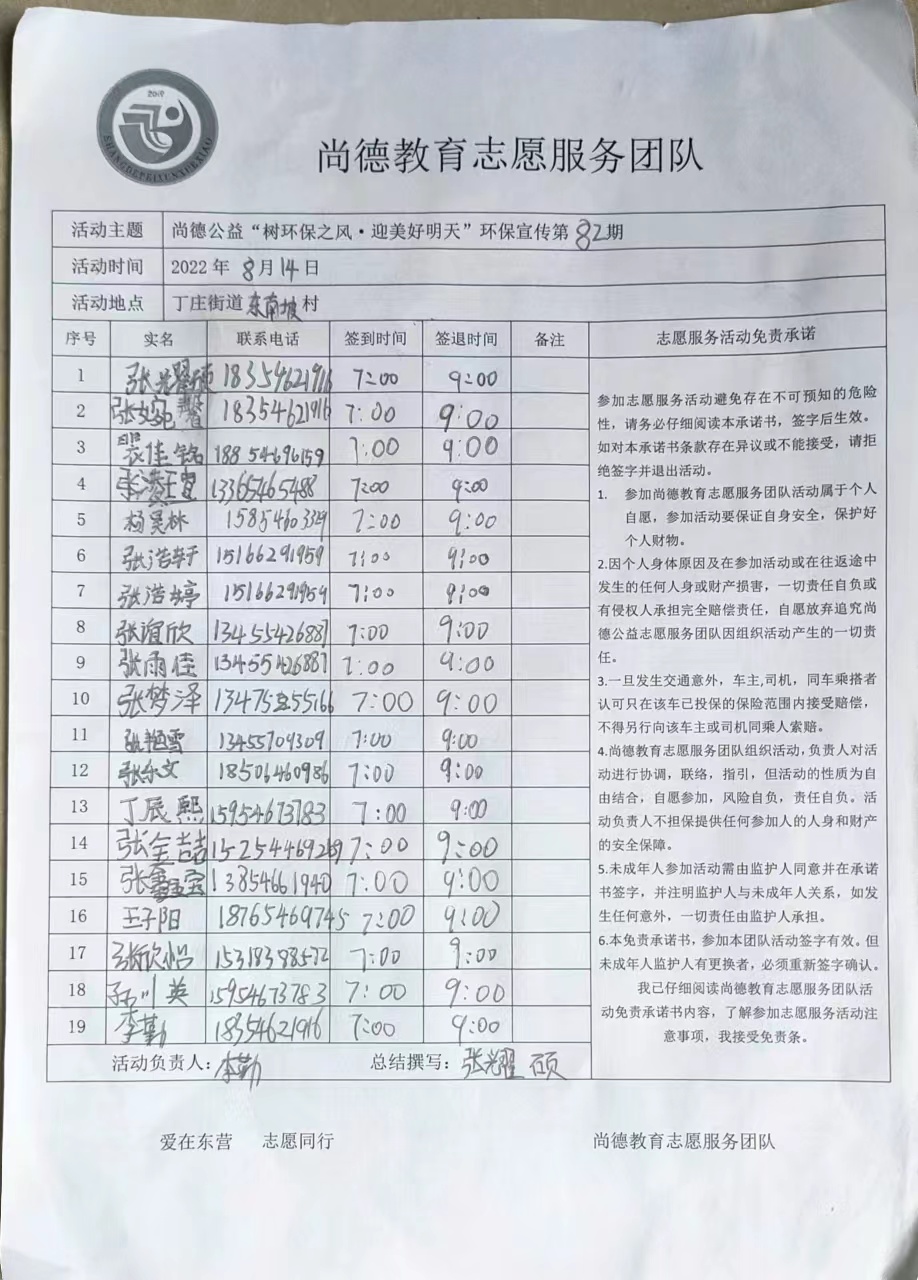 2019
SHANGDEPEIXUNXUEXIAO
尚德教育志愿服务团队
活动主题 尚德公益“树环保之风·迎美好明天”环保宣传第82期
活动时间 2022年8月14日
活动地点 丁庄街道东南坡村
序号 实名 联系电话 签到时间 签退时间 备注 志愿服务活动免责承诺
1 张光耀硕 18354621916 7:00 9:00
2 张文宛馨 18354621916 7:00 9:00
3 裴佳铭 18854696159 7:00 9:00
4 张凌宜 13365465488 7:00 9:00
5 杨昊林 15854603329 7:00 9:00
6 张浩轩 15166291959 7:00 9:00
7 张浩婷 15166291959 7:00 9:00
8 张谊欣 13455426887 7:00 9:00
9 张雨佳 13455426887 7:00 9:00
10 张梦泽 13475255166 7:00 9:00
11 张艳雪 13455709309 7:00 9:00
12 张乐文 18506460986 7:00 9:00
13 丁辰熙 15954673783 7:00 9:00
14 张金喆 15254469269 7:00 9:00
15 张宝 13854661940 7:00 9:00
16 王子阳 18765469745 7:00 9:00
17 张欣怡 15318398572 7:00 9:00
18 孟川英 15954673783 7:00 9:00
19 李勤 18354621916 7:00 9:00
活动负责人：李勤 总结撰写：张光耀硕
参加志愿服务活动避免存在不可预知的危险
性，请务必仔细阅读本承诺书，签字后生效。
如对本承诺书条款存在异议或不能接受，请拒
绝签字并退出活动。
1. 参加尚德教育志愿服务团队活动属于个人
自愿，参加活动要保证自身安全，保护好
个人财物。
2.因个人身体原因及在参加活动或在往返途中
发生的任何人身或财产损害，一切责任自负或
有侵权人承担完全赔偿责任，自愿放弃追究尚
德公益志愿服务团队因组织活动产生的一切责
任。
3.一旦发生交通意外，车主,司机，同车乘搭者
认可只在该车已投保的保险范围内接受赔偿，
不得另行向该车主或司机同乘人索赔。
4.尚德教育志愿服务团队组织活动,负责人对活
动进行协调，联络，指引，但活动的性质为自
由结合，自愿参加，风险自负，责任自负。活
动负责人不担保提供任何参加人的人身和财产
的安全保障。
5.未成年人参加活动需由监护人同意并在承诺
书签字，并注明监护人与未成年人关系，如发
生任何意外，一切责任由监护人承担。
6.本免责承诺书，参加本团队活动签字有效。但
未成年人监护人有更换者，必须重新签字确认。
我已仔细阅读尚德教育志愿服务团队活
动免责承诺书内容，了解参加志愿服务活动注
意事项，我接受免责条。
爱在东营 志愿同行 尚德教育志愿服务团队